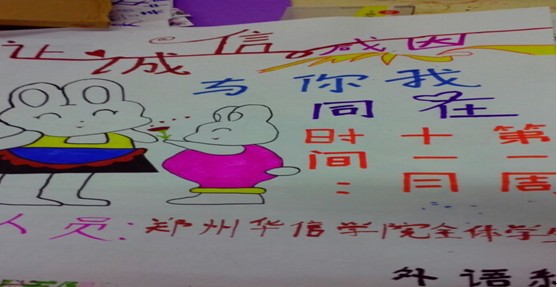 让诚信感恩
与你我
同在
时间:
十一月
第一周
人员:郑州华信学院全体学生
外语系